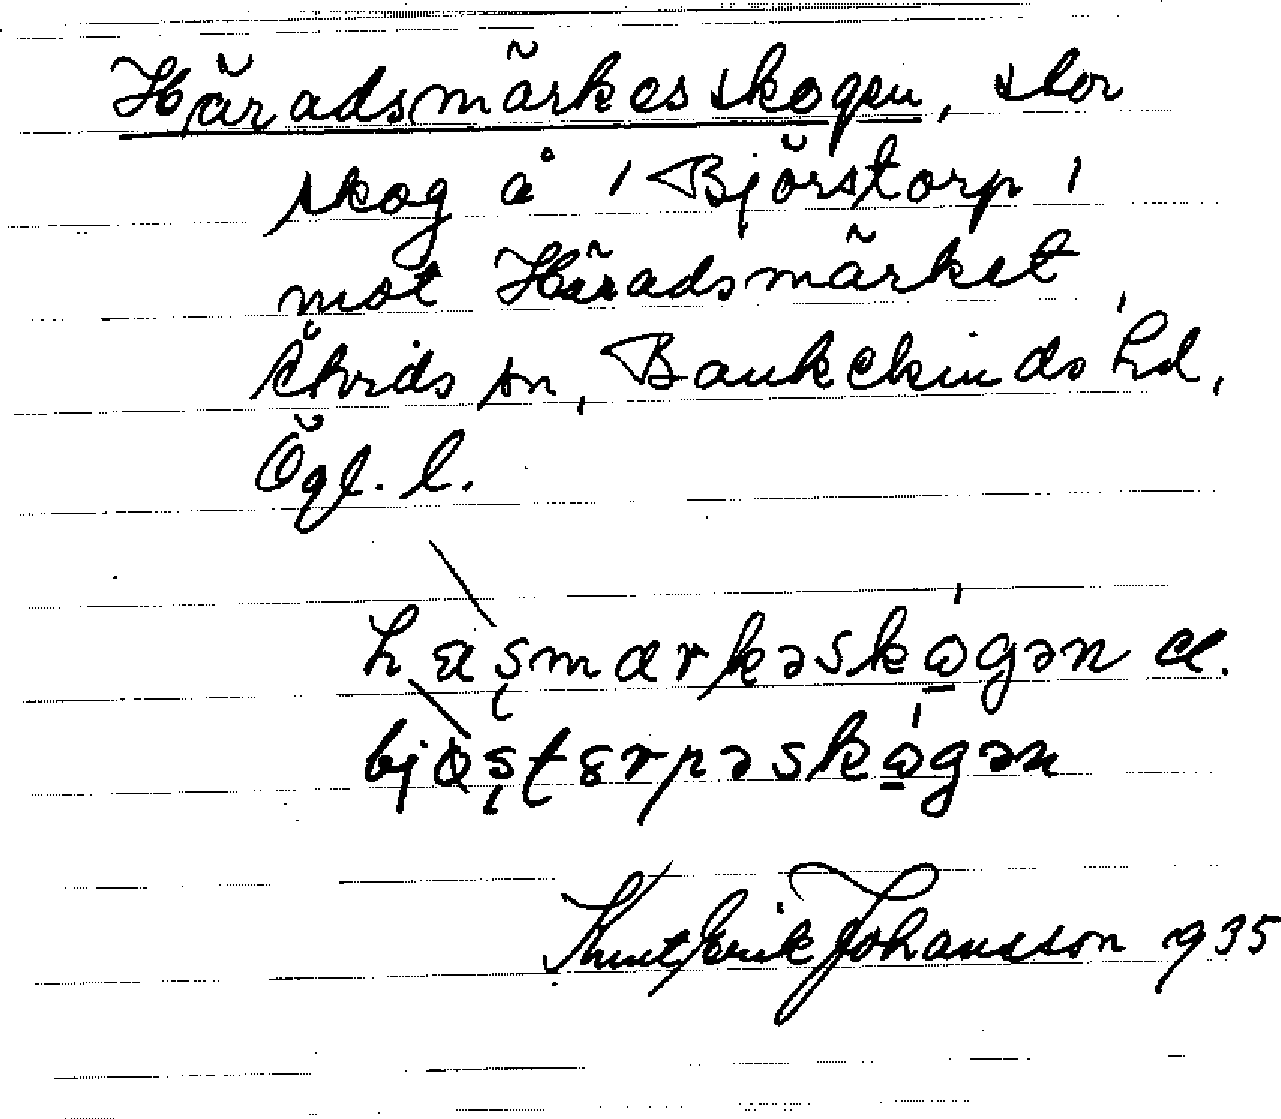 Häradsmärkesskogen, stor
skog å ' Björstorp '
mot Häradsmärket,
Åtvids sn, Bankekinds hd,
Ögl. l.
hæʂmarkəskɷ̀gən el.
bjɵʂtɛrpəskɷ̀gən
Knut Erik Johansson 1935